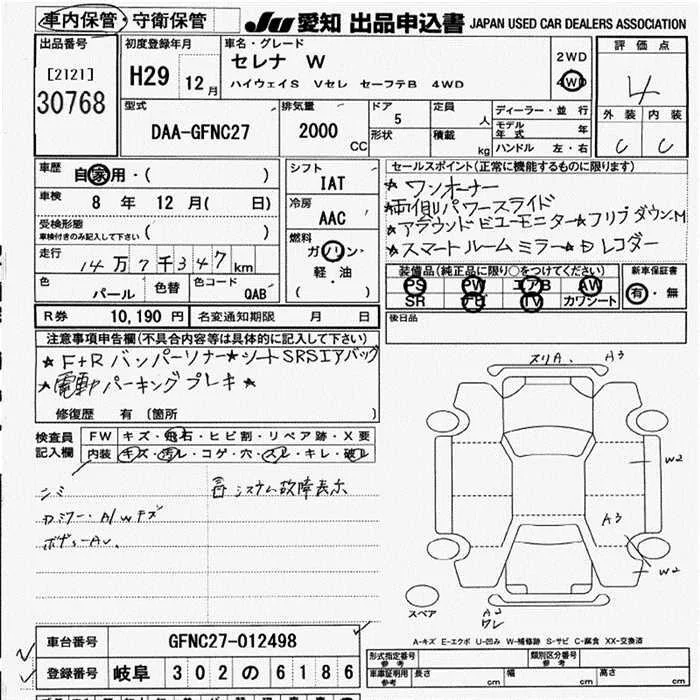 車内保管・守衛保管
JU 愛知 出品申込書 JAPAN USED CAR DEALERS ASSOCIATION
出品番号
[2121]
30768
初度登録年月
H29 12月
車名・グレード
セレナ W
ハイウェイS Vセレ セーフテB 4WD
2WD
4WD
評価点
4
外装 内装
C C
型式
DAA-GFNC27
排気量
2000 CC
ドア
5
形状
定員
人
積載
kg
ディーラー・並行
モデル年式 年
ハンドル 左・右
車歴
自家用・( )
車検
8年 12月( 日)
受検形態
車検付きのみ記入して下さい ( )
走行
14万7千347km
色
パール
色替
色コード
QAB
シフト
IAT
冷房
AAC
燃料
ガソリン・
軽・油
( )
セールスポイント(正常に機能するものに限ります)
★ワンオーナー
★両側パワースライド
★アラウンドビューモニター★フリップダウンM
★スマートルームミラー★Dレコーダー
装備品(純正品に限り○をつけてください)
PS PW エアB AW
SR ナビ TV カワシート
新車保証書
有・無
R券 10,190円 名変通知期限 月 日
後日品
注意事項申告欄(不具合内容等は具体的に記入して下さい)
★F+Rバンパーソナー★シートSRSエアバッグ
★電動パーキングブレーキ★
修復歴 有 〔箇所 〕
検査員記入欄
FW キズ・飛石・ヒビ割・リペア跡・X要
内装 キズ・汚レ・コゲ・穴・スレ・キレ・破レ
シミ
システム故障表示
スリA、 A3
W2
A3
W2
スペア
A2
ワレ
A-キズ E-エクボ U-凹み W-補修跡 S-サビ C-腐食 XX-交換済
車台番号 GFNC27-012498
登録番号 岐阜 302 の 6186
形式指定番号
参考
類別区分番号
参考
車庫証明用
参考
長さ cm 幅 cm 高さ cm